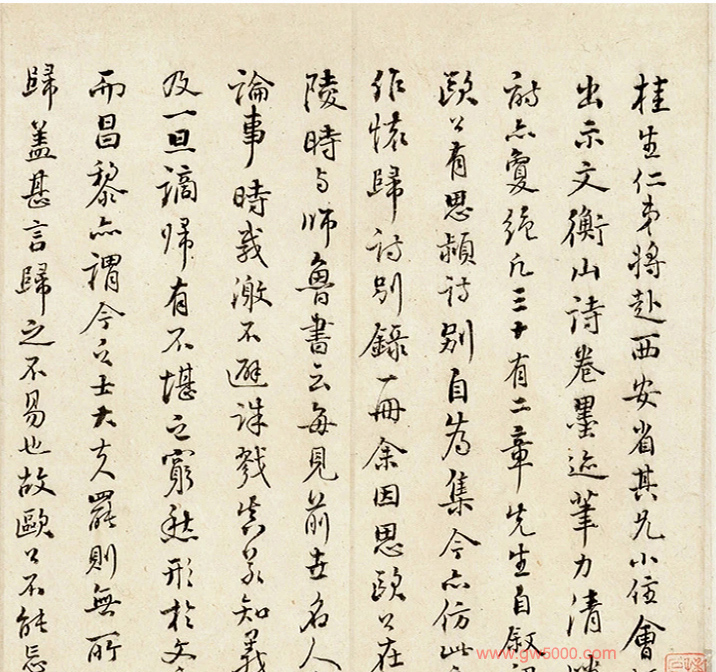 桂生仁弟将赴西安省其兄小住會
出示文衡山詩卷墨迹筆力清
詩亦夐絶凡三十有二章先生自叙
歐公有思潁詩別自為集今亦仿此
作懷歸詩別錄一冊余因思歐公在
陵時与師魯書云每見前世名人
論事時感激不避誅戮真若知義
及一旦謫歸有不堪之窮愁形於文
而昌黎亦謂今之士大夫罷則無所
歸蓋甚言歸之不易也故歐公不能忘
www.gw5000.com